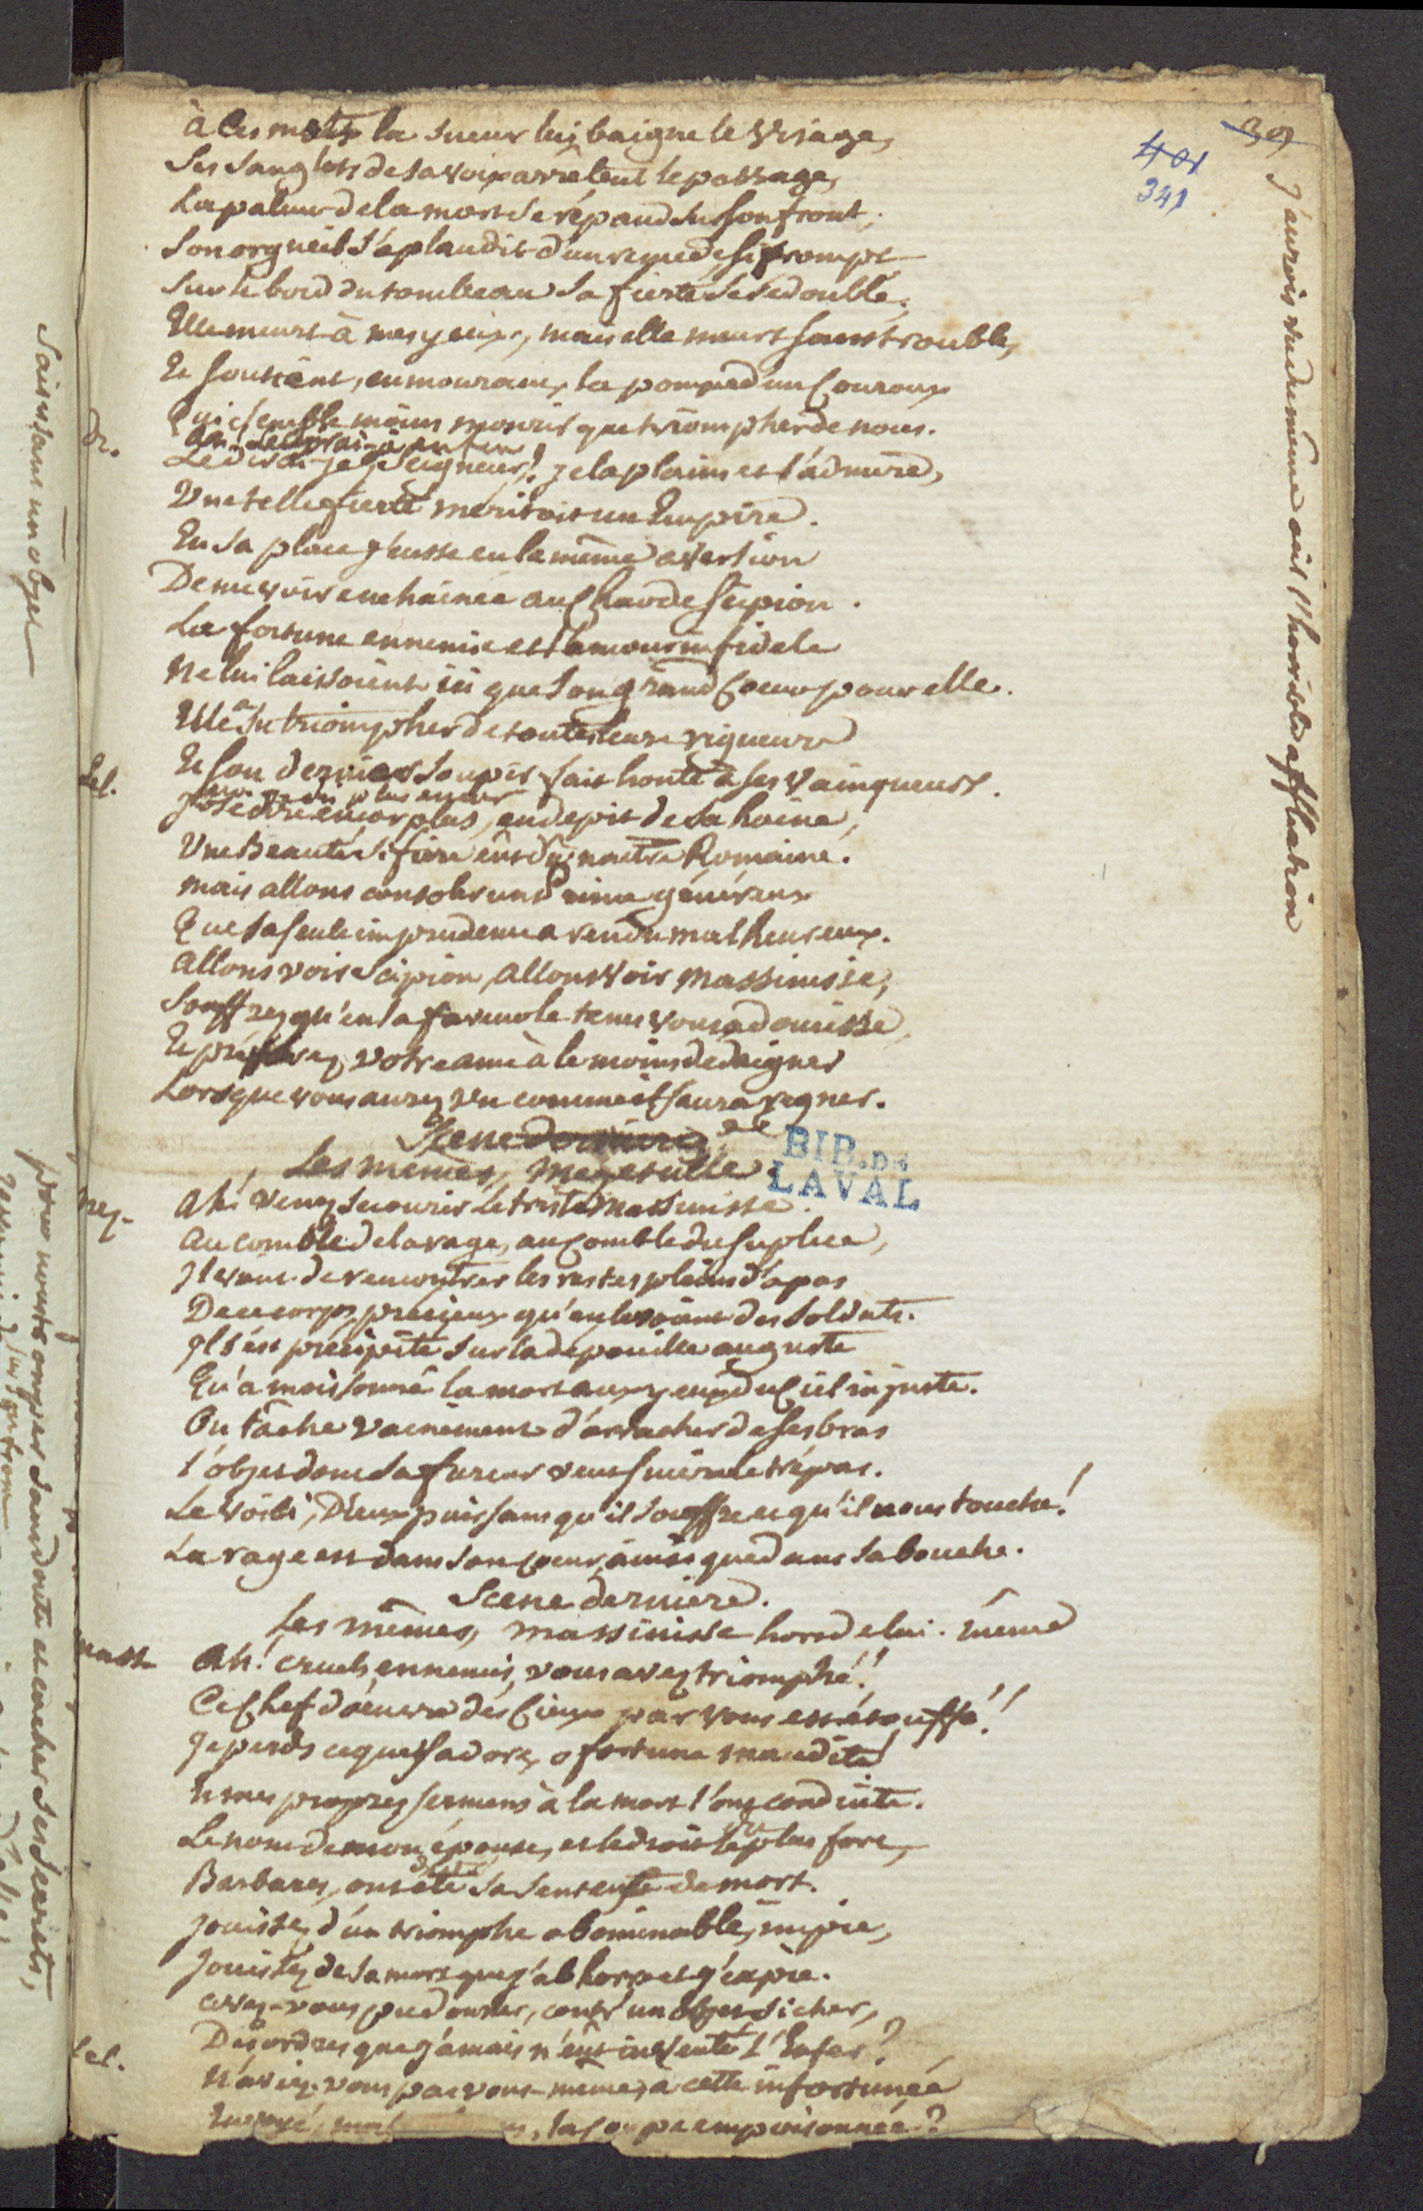 39
401
341
à ces mots la sueur lui baigne le visage,
Ses sanglots de sa voix arrêtent le passage,
La paleur de la mort se répand sur son front;
Son orgueil s'aplaudit d'un remede si prompt
Sur le bord du tombeau sa fierté se redouble;
Elle meurt à mes yeux, mais elle meurt sans trouble,
Et soutient, en mourant, la pompe d'un Couroux
Qui semble moins mourir que triompher de nous.
Dr.
Le dirai-je, Seigneur! je la plains et l'admire,
Une telle fierté méritoit un Empire.
En sa place j'eusse eu la même aversion
De me voir enchainée au Char de Scipion.
La fortune ennemie et l'amour infidele
Ne lui laissoient ici que son grand Coeur pour elle.
Elle a su triompher de toute leur rigueur
Et son dernier soupir fait honte à ses Vainqueurs.
Lel.
J'ose dire encor plus, en depit de sa haine,
Une Beauté si fiere eût dû naitre Romaine.
mais allons consoler un Prince généreux
Que sa seule imprudence a rendu malheureux.
Allons voir Scipion, allons voir Massinisse,
Souffrez qu'en sa faveur le tems vous adoucisse
Et préparez votre ame à le moins dedaigner
Lorsque vous aurez vu comme il saura regner.
Scene derniere
Les mêmes, Mezetulle.
BIB. DE
LAVAL
Mez.
Ah! venez secourir le triste Massinisse.
Au comble de la rage, au Comble du suplice,
Il vient de rencontrer les restes pleins d'apas
De ce corps précieux qu'enlevoient des soldats.
Il s'est précipité sur la dépouille auguste
Qu'a moissonné la mort aux yeux du Ciel injuste.
On tâche vainement d'arracher de ses bras
l'objet dont sa fureur veut suivre le trépas.
Le voici, Dieux puissans qu'il souffre et qu'il nous touche!
La rage est dans son Coeur, ainsi que dans sa bouche.
Scene derniere.
Les mêmes, Massinisse hors de lui-même
Mass.
Ah! cruels ennemis, vous avez triomphé!
Ce Chef d'oeuvre des Cieux par vous est étouffé!
Je perds ce que j'adore, o fortune maudite!
Et mes propres sermens à la mort l'ont conduite.
Le nom de mon épouse, et le droit du plus fort,
Barbares, ont été sa sentence de mort.
Jouissez d'un triomphe abominable, impie,
Jouissez de sa mort que j'abhorre et j'expie.
Avez-vous pu donner, contr'un objet si cher,
Des ordres que jamais n'eût inventé l'Enfer?
Lel.
N'aviez-vous pas vous-même, à cette infortunée
Envoyé, la Coupe empoisonnée?
J'aurois vu de même oeil l'horrible affliction
Saisissant un objet
pour nous tromper sans doute et cacher ses secrets,